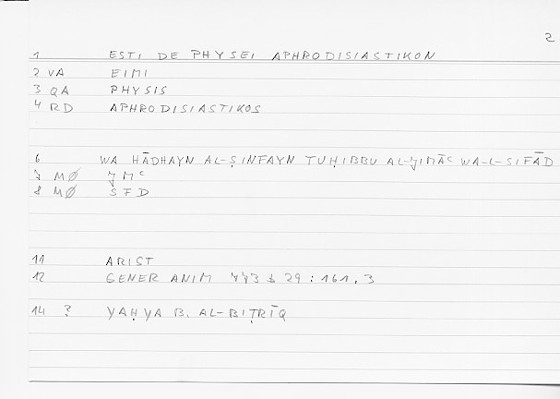 2
1 ESTI DE PHYSEI APHRODISIASTIKON
2 VA EIMI
3 QA PHYSIS
4 RD APHRODISIASTIKOS
6 WA HĀDHAYN AL-ṢINFAYN TUḤIBBU AL-ǦIMĀʿ WA-L-SIFĀD
7 MØ ǦMʿ
8 MØ SFD
11 ARIST
12 GENER ANIM 773 b 29 : 161, 3
14 ? YAḤYA B. AL-BIṬRĪQ